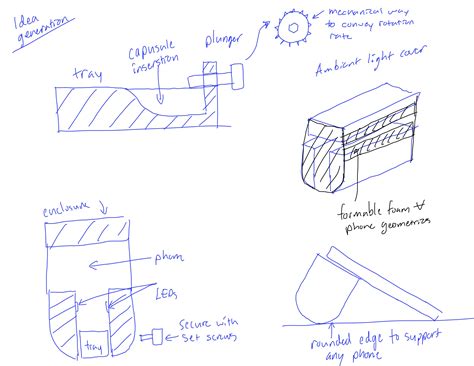 Idea
generation
plunger
mechanical way
to convey rotation
rate
capusule
insertion
tray
Ambient light cover
formable foam ∀
phone geometries
enclosure
phone
LEDs
tray
secure with
set screws
rounded edge to support
any phone